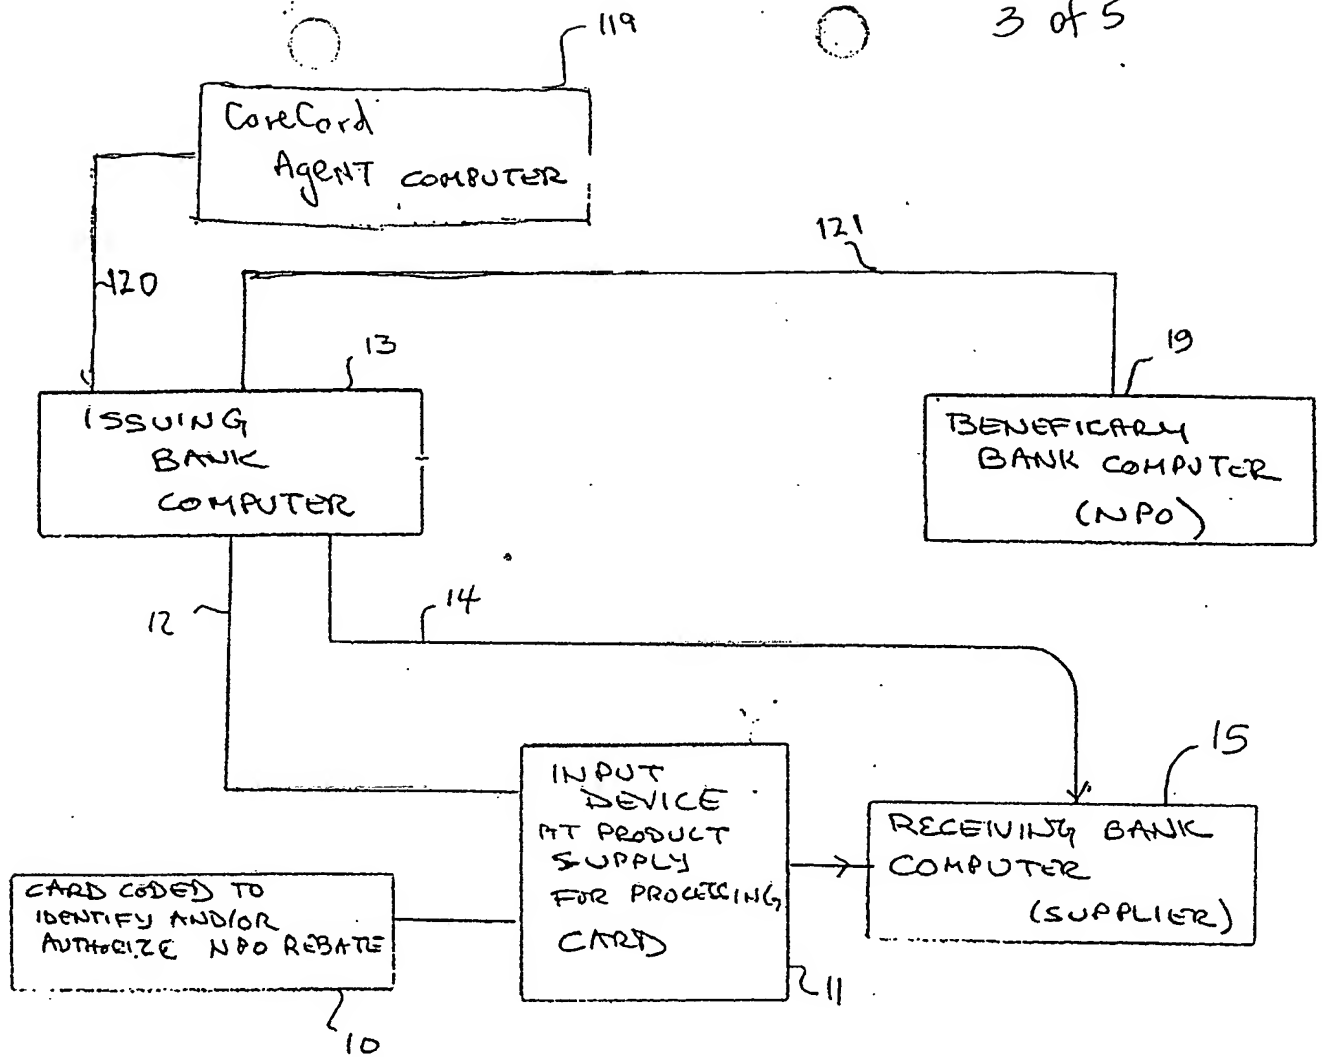 3 of 5
119
CareCard
Agent COMPUTER
120
121
13
ISSUING
BANK
COMPUTER
19
BENEFICARY
BANK COMPUTER
(NPO)
12
14
INPUT
DEVICE
AT PRODUCT
SUPPLY
FOR PROCESSING
CARD
11
15
RECEIVING BANK
COMPUTER
(SUPPLIER)
CARD CODED TO
IDENTIFY AND/OR
AUTHORIZE NPO REBATE
10